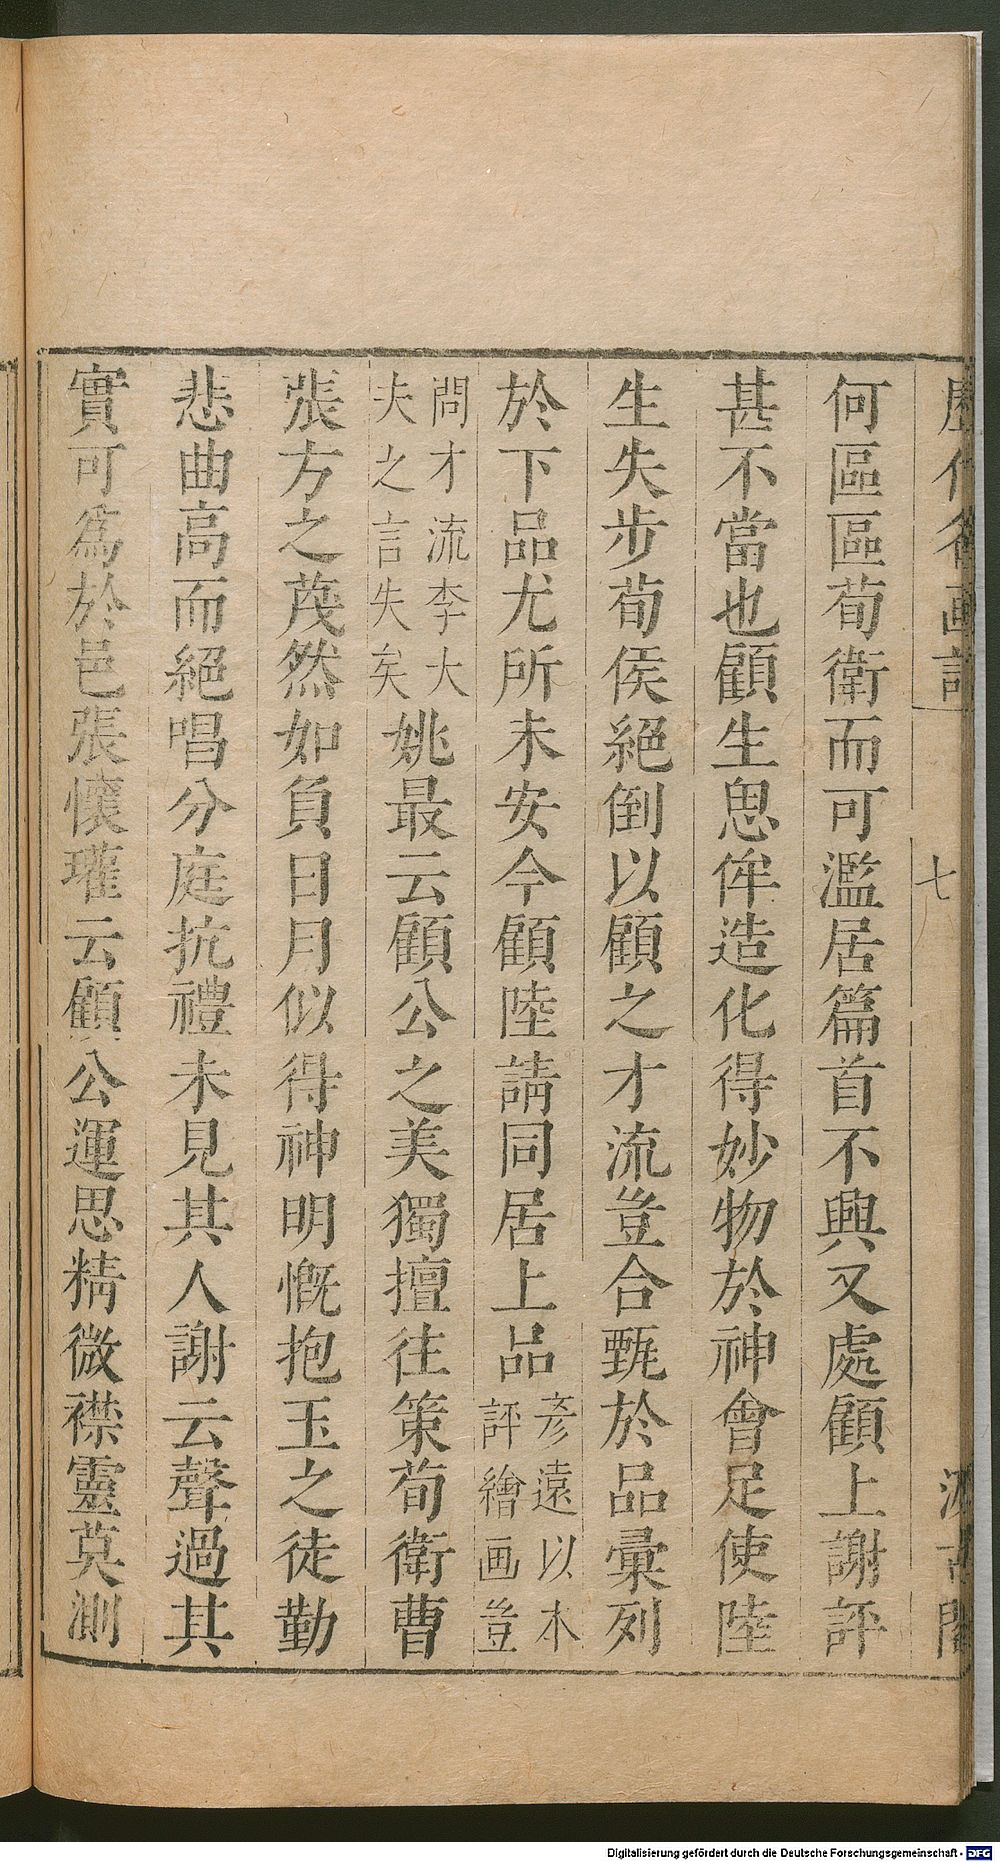 歷代名画記
七
汲古閣
何區區荀衛而可濫居篇首不興又處顧上謝評
甚不當也顧生思侔造化得妙物於神會足使陸
生失步荀侯絕倒以顧之才流豈合甄於品彙列
於下品尤所未安今顧陸請同居上品彥遠以本評繪画豈
問才流李大夫之言失矣姚最云顧公之美獨擅往策荀衛曹
張方之茂然如負日月似得神明慨抱玉之徒勤
悲曲高而絕唱分庭抗禮未見其人謝云聲過其
實可為於邑張懷瓘云顧公運思精微襟靈莫測
Digitalisierung gefördert durch die Deutsche Forschungsgemeinschaft - DFG